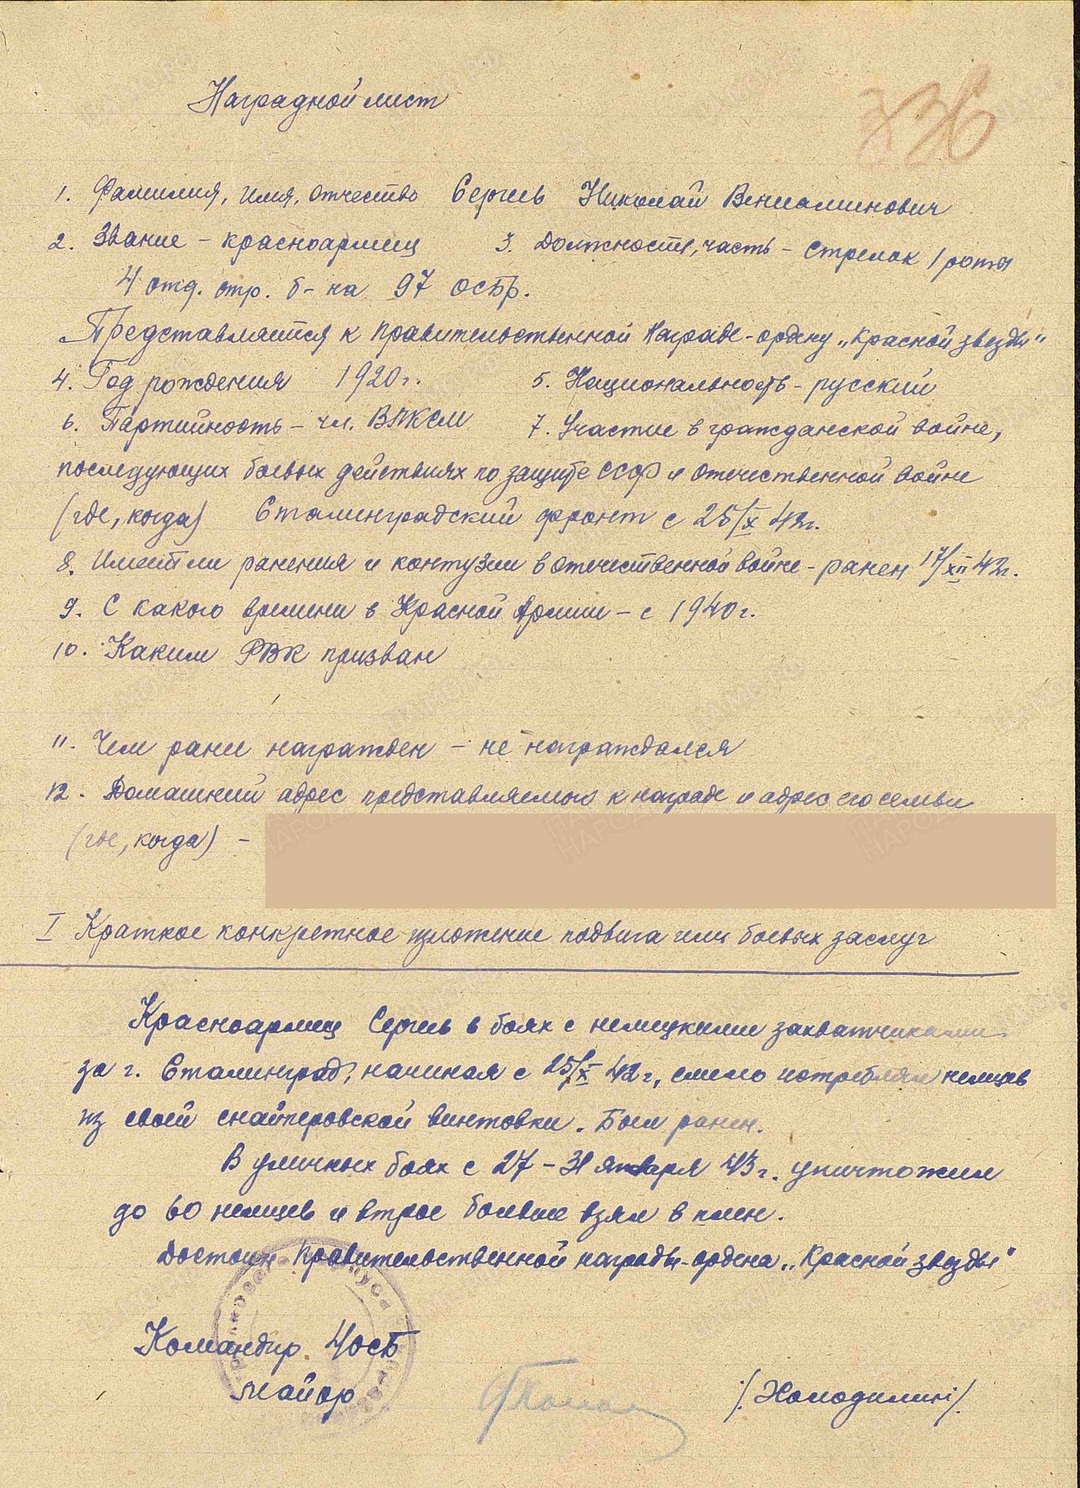 Наградной лист
336
1. Фамилия, имя, отчество Сергеев Николай Вениаминович
2. Звание - красноармеец 3. Должность, часть - стрелок 1 роты
4 отд. стр. б-на 97 осбр.
Представляется к правительственной награде - ордену „Красной звезды"
4. Год рождения 1920 г. 5. Национальность - русский
6. Партийность - чл. ВЛКСМ 7. Участие в гражданской войне,
последующих боевых действиях по защите СССР и отечественной войне
(где, когда) Сталинградский фронт с 25/X 42г.
8. Имеет ли ранения и контузии в отечественной войне - ранен 17/XII 42г.
9. С какого времени в Красной Армии - с 1940г.
10. Каким РВК призван
11. Чем ранее награжден - не награждался
12. Домашний адрес представляемого к награде и адрес его семьи
(где, когда) -
I Краткое конкретное изложение подвига или боевых заслуг
Красноармеец Сергеев в боях с немецкими захватчиками
за г. Сталинград, начиная с 25/X 42г., смело истреблял немцев
из своей снайперовской винтовки. Был ранен.
В уличных боях с 27-31 января 43г. уничтожил
до 60 немцев и втрое больше взял в плен.
Достоин правительственной награды - ордена „Красной звезды"
Командир 4 осб
майор /Холодилин/.